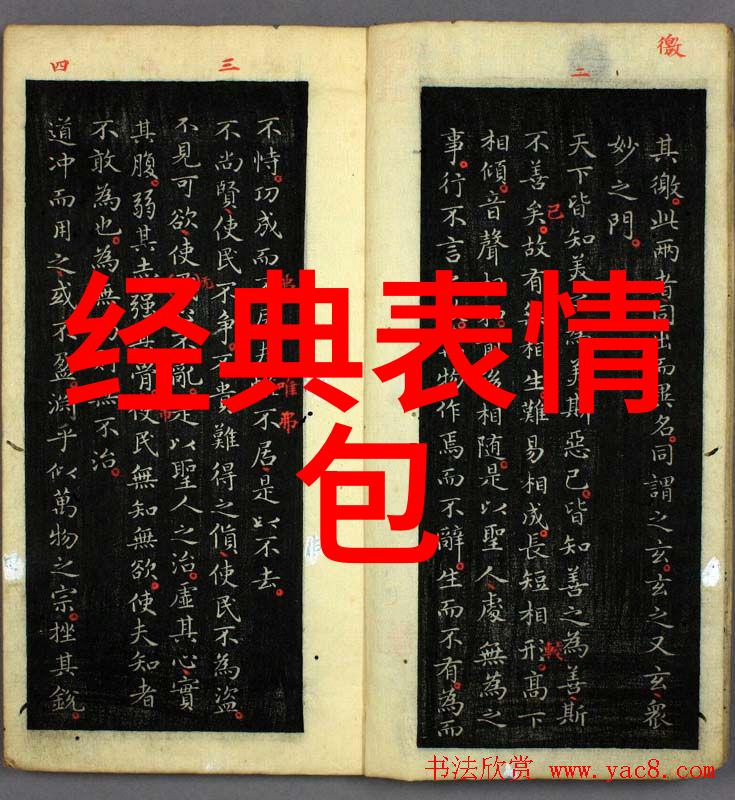 经典表情
包
徼
二
其徼此两者同出而異名同謂之玄玄之又玄眾
妙之門
天下皆知美為美斯惡已皆知善之為善斯
不善矣故有相生難易相成長短相形高下
相傾音聲相前後相隨是以聖人處無為之
事行不言物作焉而不辭生而不有為而
己
較
三
四
不恃功成而居不居是以不去
不尚賢使民不争不貴難得之貨使民不為盜
不見可欲使不亂是以聖人之治虛其心實
其腹弱其志强其骨使民無知無欲使夫知者
不敢為也為無無不治
道冲而用之或不盈渊乎似萬物之宗挫其銳
唯弗
书法欣赏 www.yac8.com